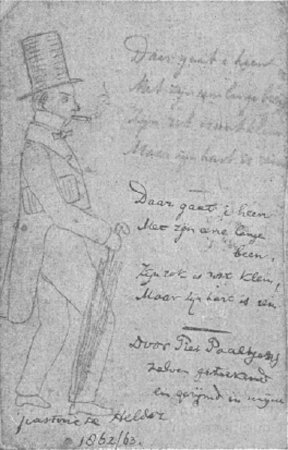 Daar gaat i heen
Met zijn eene lange
Zijn rok
Maar zijn hart is
Daar gaat i heen
Met zijn eene lange
been.
Zijn rok is wat klein,
Maar zijn hart is rein
Door Piet Paaltjens
zelven geteekend
en gerijmd in
pastorie te Helder
1862/63.